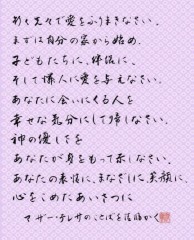 行く先々で愛をふりまきなさい。
まずは自分の家から始め、
子どもたちに、伴侶に、
そして隣人に愛を与えなさい。
あなたに会いにくる人を
幸せな気分にして帰しなさい。
神の優しさを
あなたが身をもって示しなさい。
あなたの表情に、まなざしに、笑顔に、
心をこめたあいさつに
マザーテレサのことばを
かく